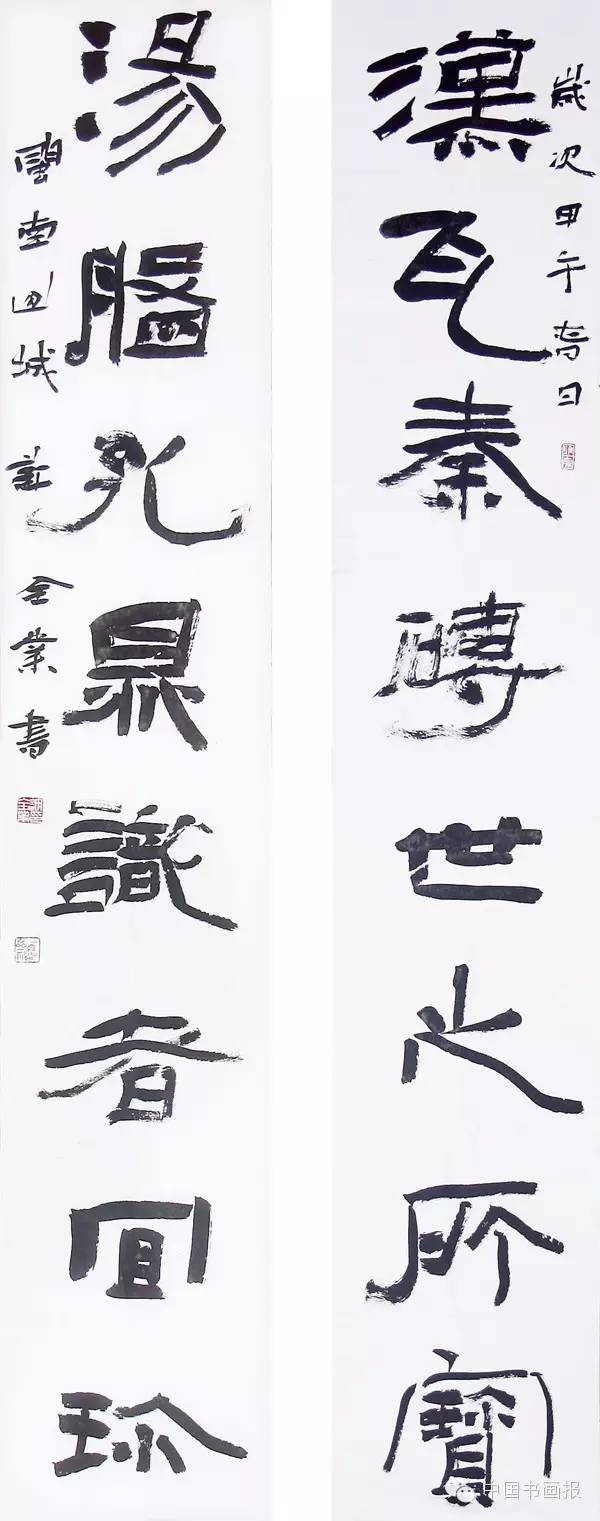 歲次甲午春日
漢瓦秦磚世之所寶
湯盤孔鼎識者宜珍
閩南城全業書
中国书画报